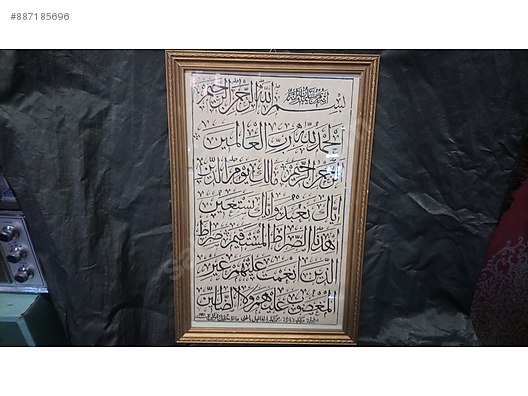 #887185696
بسم الله الرحمن الرحيم
الحمد لله رب العالمين
الرحمن الرحيم مالك يوم الدين
اياك نعبد واياك نستعين
اهدنا الصراط المستقيم صراط
الذين انعمت عليهم غير
المغضوب عليهم ولا الضالين